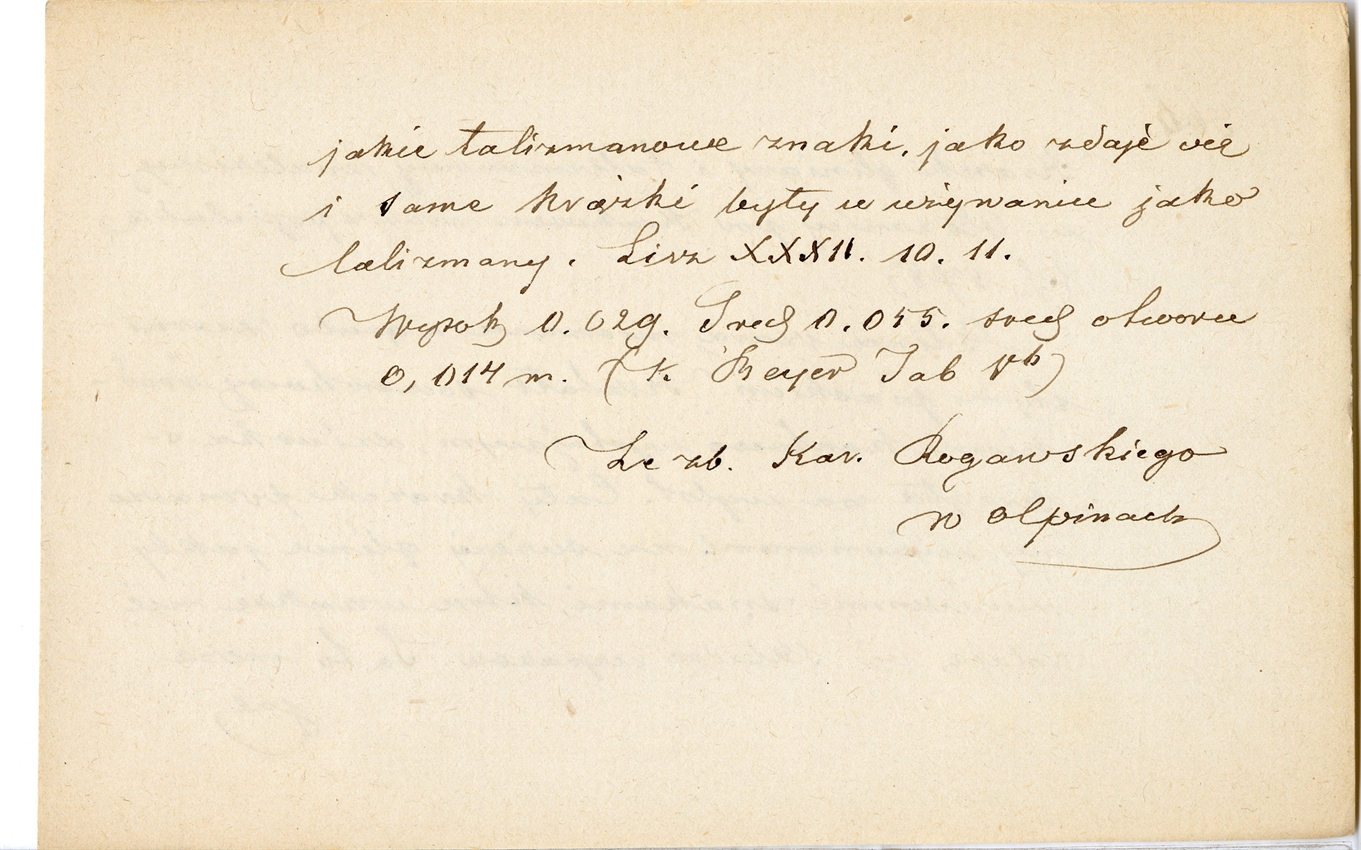 jakie talizmanowe znaki, jako zdaje się
i same krążki były w używaniu jako
talizmany. Lisz XXXII. 10. 11.
Wysok 0.029. Sred 0.055. sred otworu
0,014 m. (K. Beyer Tab V b)
Ze zb. Kar. Rogawskiego
w Ołpinach